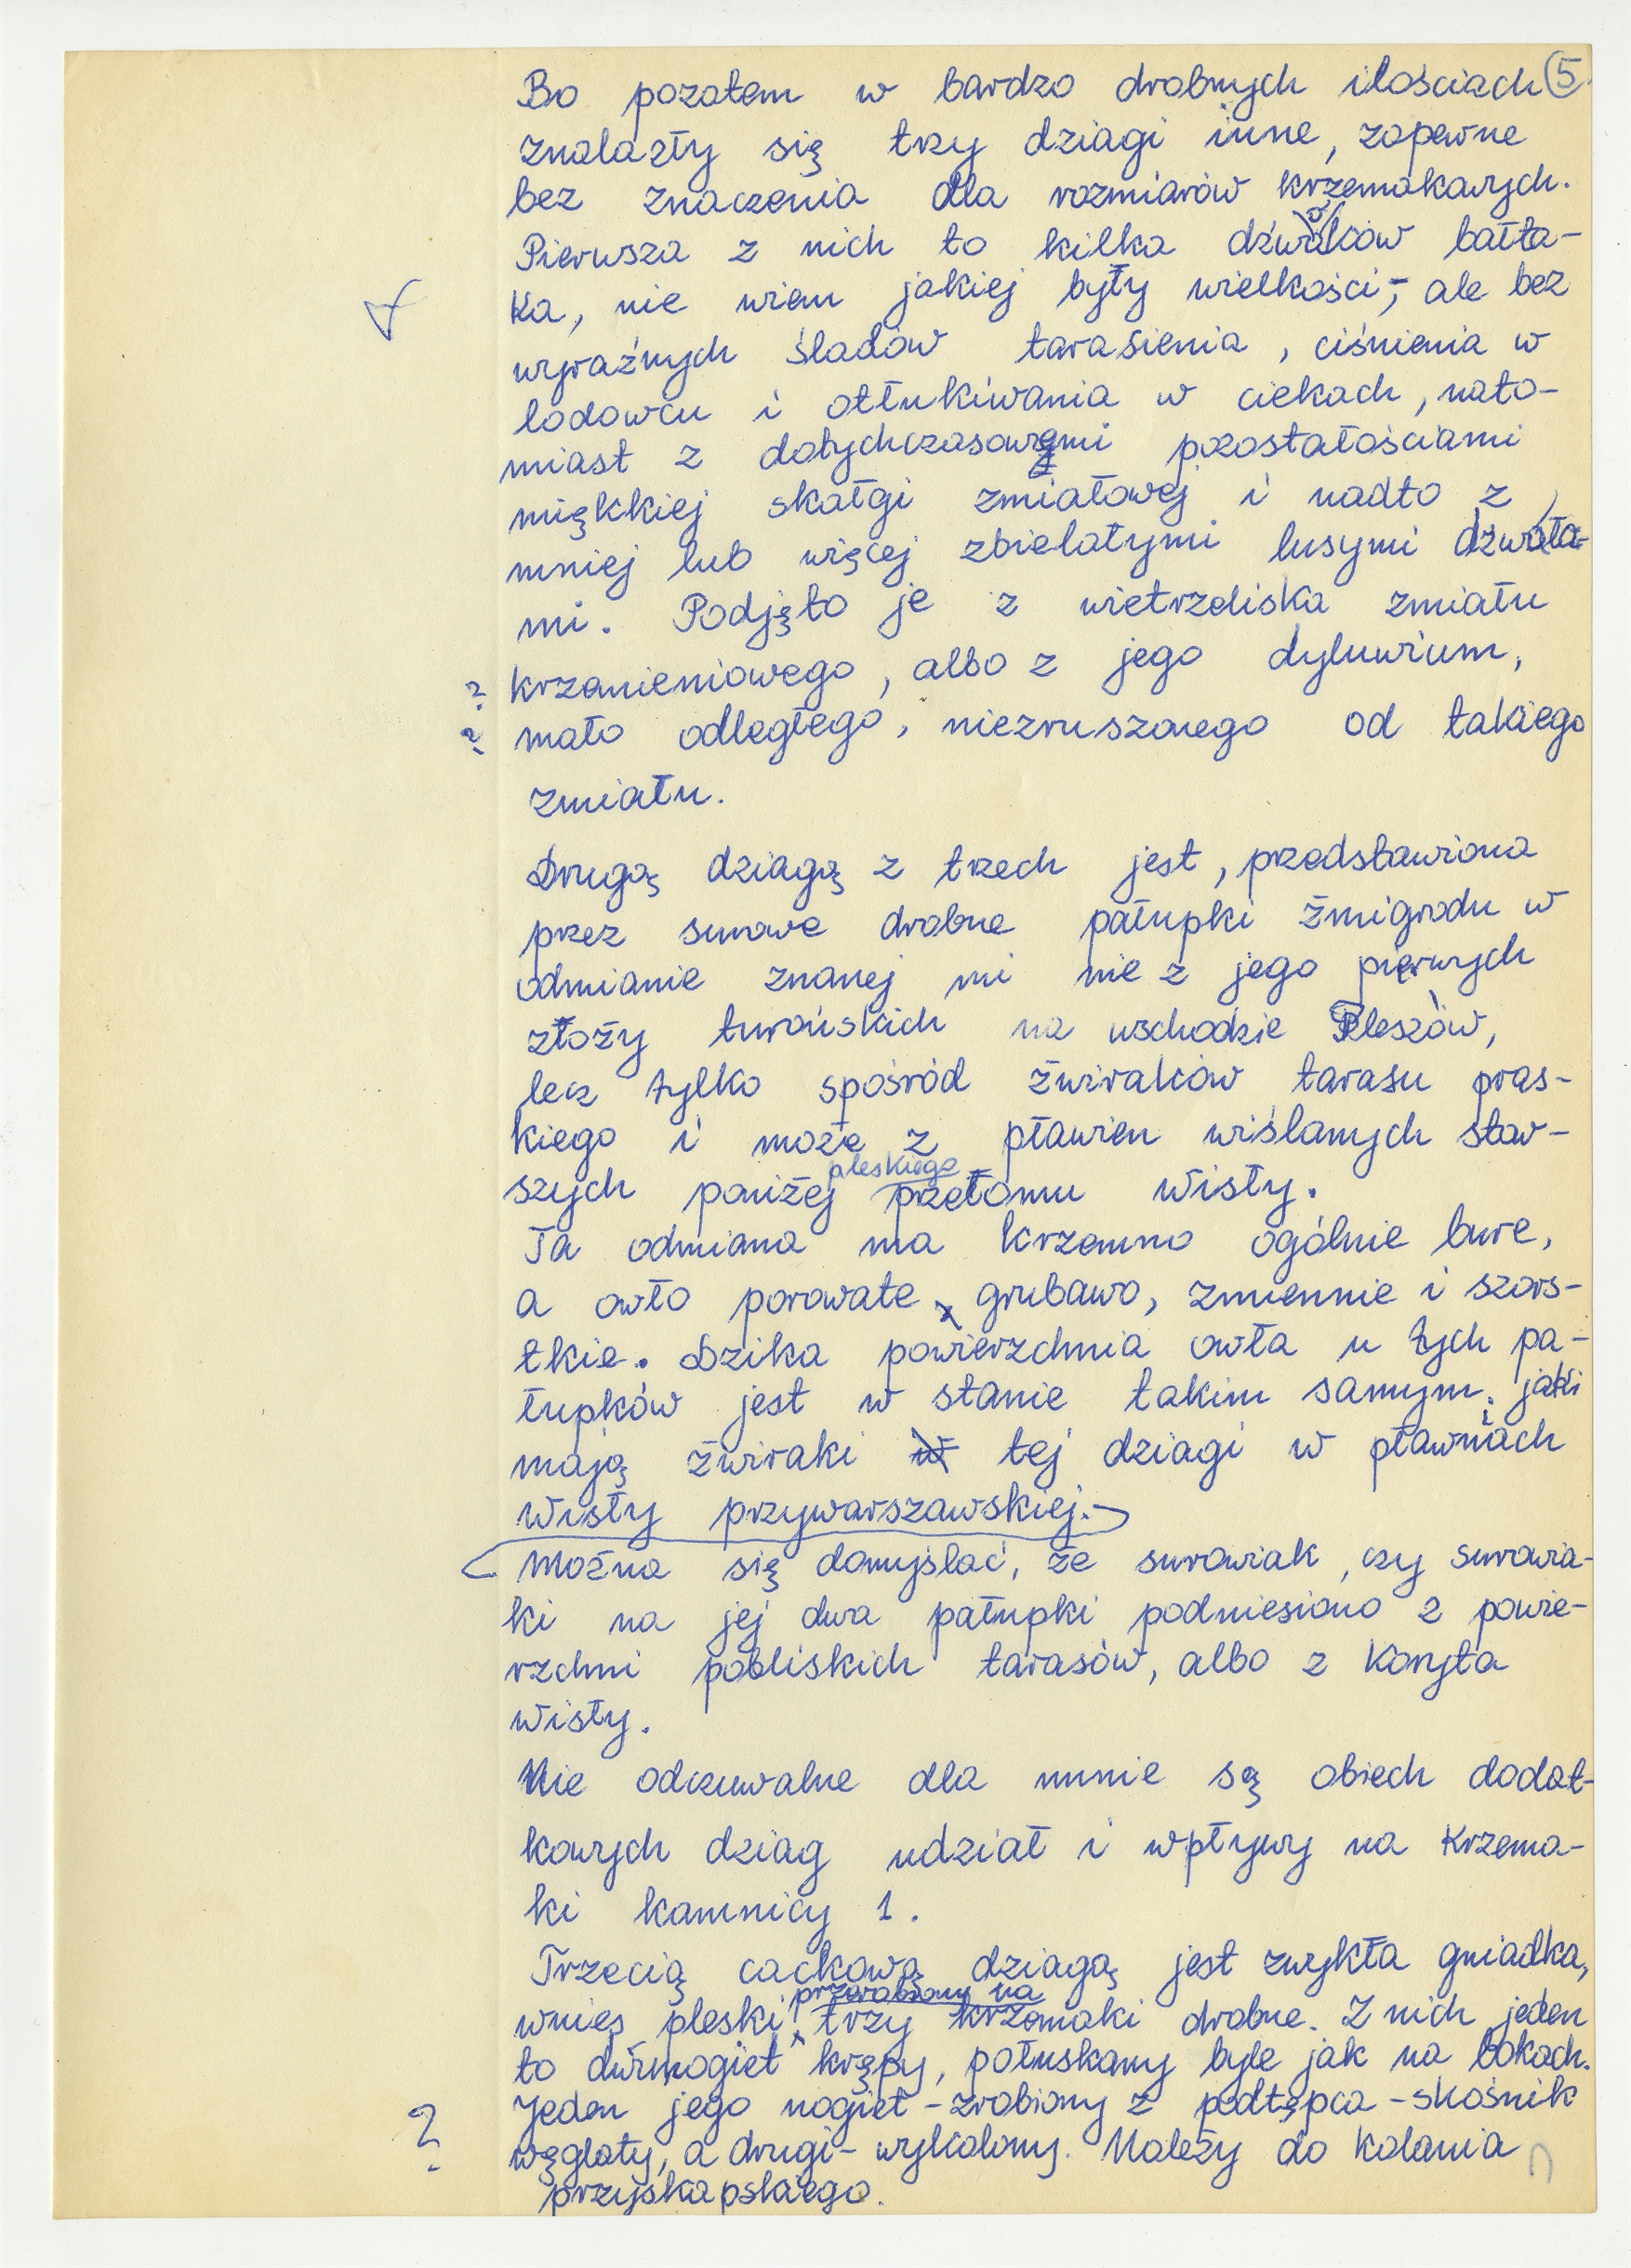 Bo pozatem w bardzo drobnych ilościach 5
znalazły się trzy dziagi inne, zapewne
bez znaczenia dla rozmiarów krzemakowych.
Pierwsza z nich to kilka dźwałków bałta-
ka, nie wiem jakiej były wielkości, ale bez
wyraźnych śladów tarasienia, ciśnienia w
lodowcu i otłukiwania w ciekach, nato-
miast z dotychczasowymi pozostałościami
miękkiej skałgi zmiałowej i nadto z
mniej lub więcej zbielałymi łusymi dzwoła-
mi. Podjęto je z wietrzeliska zmiału
? krzemieniowego, albo z jego dyluwium,
? mało odległego, niezruszonego od takiego
zmiału.
Drugą dziagą z trzech jest, przedstawiona
przez surowe drobne pałupki żmigrodu w
odmianie znanej mi nie z jego pierwych
złoży turońskich na wschodzie Pleszów,
lecz tylko spośród żwiraków tarasu pras-
kiego i może z pławien wiślanych star-
szych poniżej pleskiego przełomu Wisły.
Ta odmiana ma krzemno ogólnie bure,
a owło porowate, grubawo, zmiennie i szors-
tkie. Dzika powierzchnia owła u tych pa-
łupków jest w stanie takim samym, jaki
mają żwiraki tej dziagi w pławniach
Wisły przywarszawskiej.
Można się domyślać, że surowiak, czy surowia-
ki na jej dwa pałupki podniesiono z powie-
rzchni pobliskich tarasów, albo z koryta
Wisły.
Nie odczuwalne dla mnie są obiech dodat-
kowych dziag udział i wpływy na krzema-
ki kamnicy 1.
Trzecią cackową dziagą jest zwykła gniadka,
wnies pleski przerobiony na trzy krzemaki drobne. Z nich jeden
to dwunogiet krępy, połuskany byle jak na bokach.
Jeden jego nogiet - zrobiony z podtępca - skośnik
? węglaty, a drugi - wykolony. Należy do kolania
przyskapskiego.